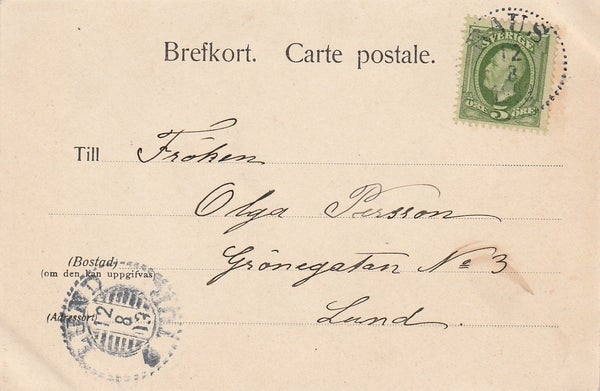 Brefkort. Carte postale.
SVERIGE
5
ÖRE
12
8
Till Fröken
Olga Persson
(Bostad)
(om den kan uppgifvas)
Grönegatan No 3
(Adressort)
Lund.
LUND
12
8
03